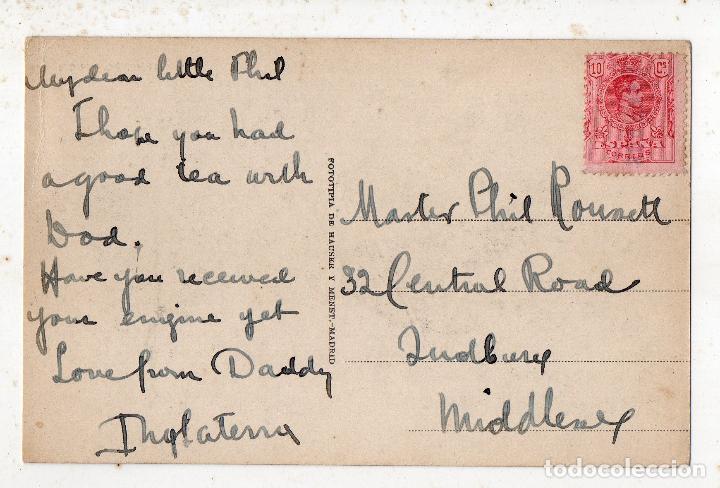 My dear little Phil
I hope you had
a good tea with
Dod.
Have you received
your engine yet
Love from Daddy
Inglaterra
FOTOTIPIA DE HAUSER Y MENET.-MADRID
10 Cs
CORREOS
Master Phil
32 Central Road
Middlesex
todocoleccion
todocoleccion.net